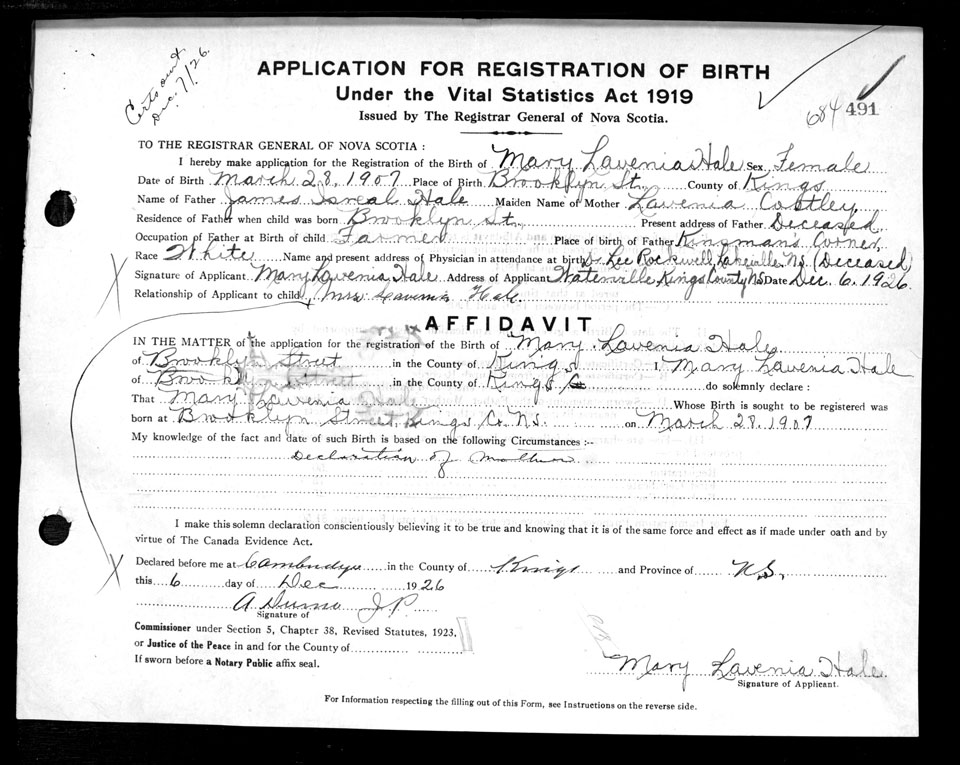 Certs out
Dec. 7/26.
APPLICATION FOR REGISTRATION OF BIRTH
Under the Vital Statistics Act 1919
Issued by The Registrar General of Nova Scotia.
684 491
TO THE REGISTRAR GENERAL OF NOVA SCOTIA :
I hereby make application for the Registration of the Birth of Mary Lavenia Hale Sex Female
Date of Birth March 28, 1907 Place of Birth Brooklyn St., County of Kings
Name of Father James Isreal Hale Maiden Name of Mother Lavenia Costley
Residence of Father when child was born Brooklyn St., Present address of Father Deceased
Occupation of Father at Birth of child Farmer Place of birth of Father Kingman's Corner,
Race White Name and present address of Physician in attendance at birth Dr. Lee Rockwell, Lakeville. N.S. (Deceased)
Signature of Applicant Mary Lavenia Hale Address of Applicant Waterville, Kings County, N.S. Date Dec. 6. 1926.
Relationship of Applicant to child Mrs Lavenia Hale
AFFIDAVIT
IN THE MATTER of the application for the registration of the Birth of Mary Lavenia Hale
of Brooklyn Street in the County of Kings I, Mary Lavenia Hale
of Brooklyn Street in the County of Kings do solemnly declare :
That Mary Lavenia Hale Whose Birth is sought to be registered was
born at Brooklyn Street, Kings Co. N.S. on March 28, 1907
My knowledge of the fact and date of such Birth is based on the following Circumstances :--
Declaration of Mother
I make this solemn declaration conscientiously believing it to be true and knowing that it is of the same force and effect as if made under oath and by
virtue of The Canada Evidence Act.
Declared before me at Cambridge in the County of Kings and Province of N.S.,
this 6 day of Dec 1926
A J.P.
Signature of
Commissioner under Section 5, Chapter 38, Revised Statutes, 1923.
or Justice of the Peace in and for the County of
If sworn before a Notary Public affix seal.
Mary Lavenia Hale.
Signature of Applicant.
For Information respecting the filling out of this Form, see Instructions on the reverse side.